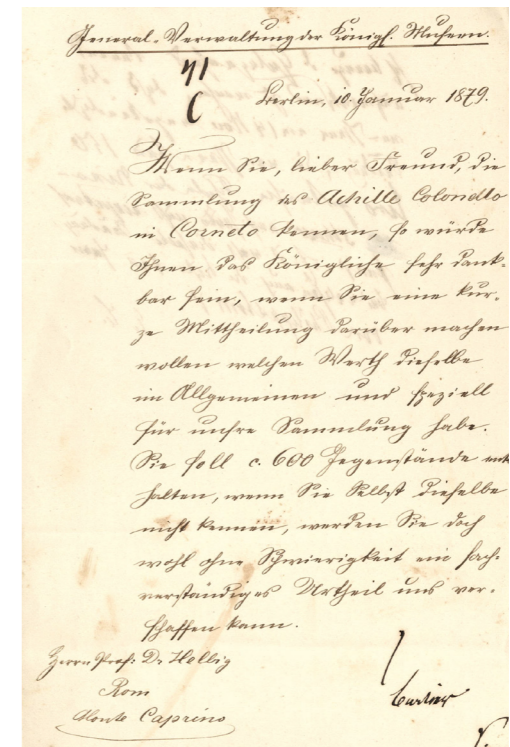 General-Verwaltung der Königl. Museen.
Berlin, 10. Januar 1879.
Wenn Sie, lieber Freund, die
Sammlung des Achille
in Corneto kennen, so würde
Ihnen das Königliche sehr dank-
bar sein, wenn Sie eine kur-
ze Mittheilung darüber machen
wollen welchen Werth dieselbe
im Allgemeinen und speziell
für unsre Sammlung habe.
Sie soll c. 600 Gegenstände ent
halten, wenn Sie Selbst dieselbe
nicht kennen, werden Sie doch
wohl ohne Schwierigkeit ein sach-
verständiges Urtheil uns ver-
schaffen kann.
Curtius
Herrn Prof: Dr Helbig
Rom
Monte Caprino